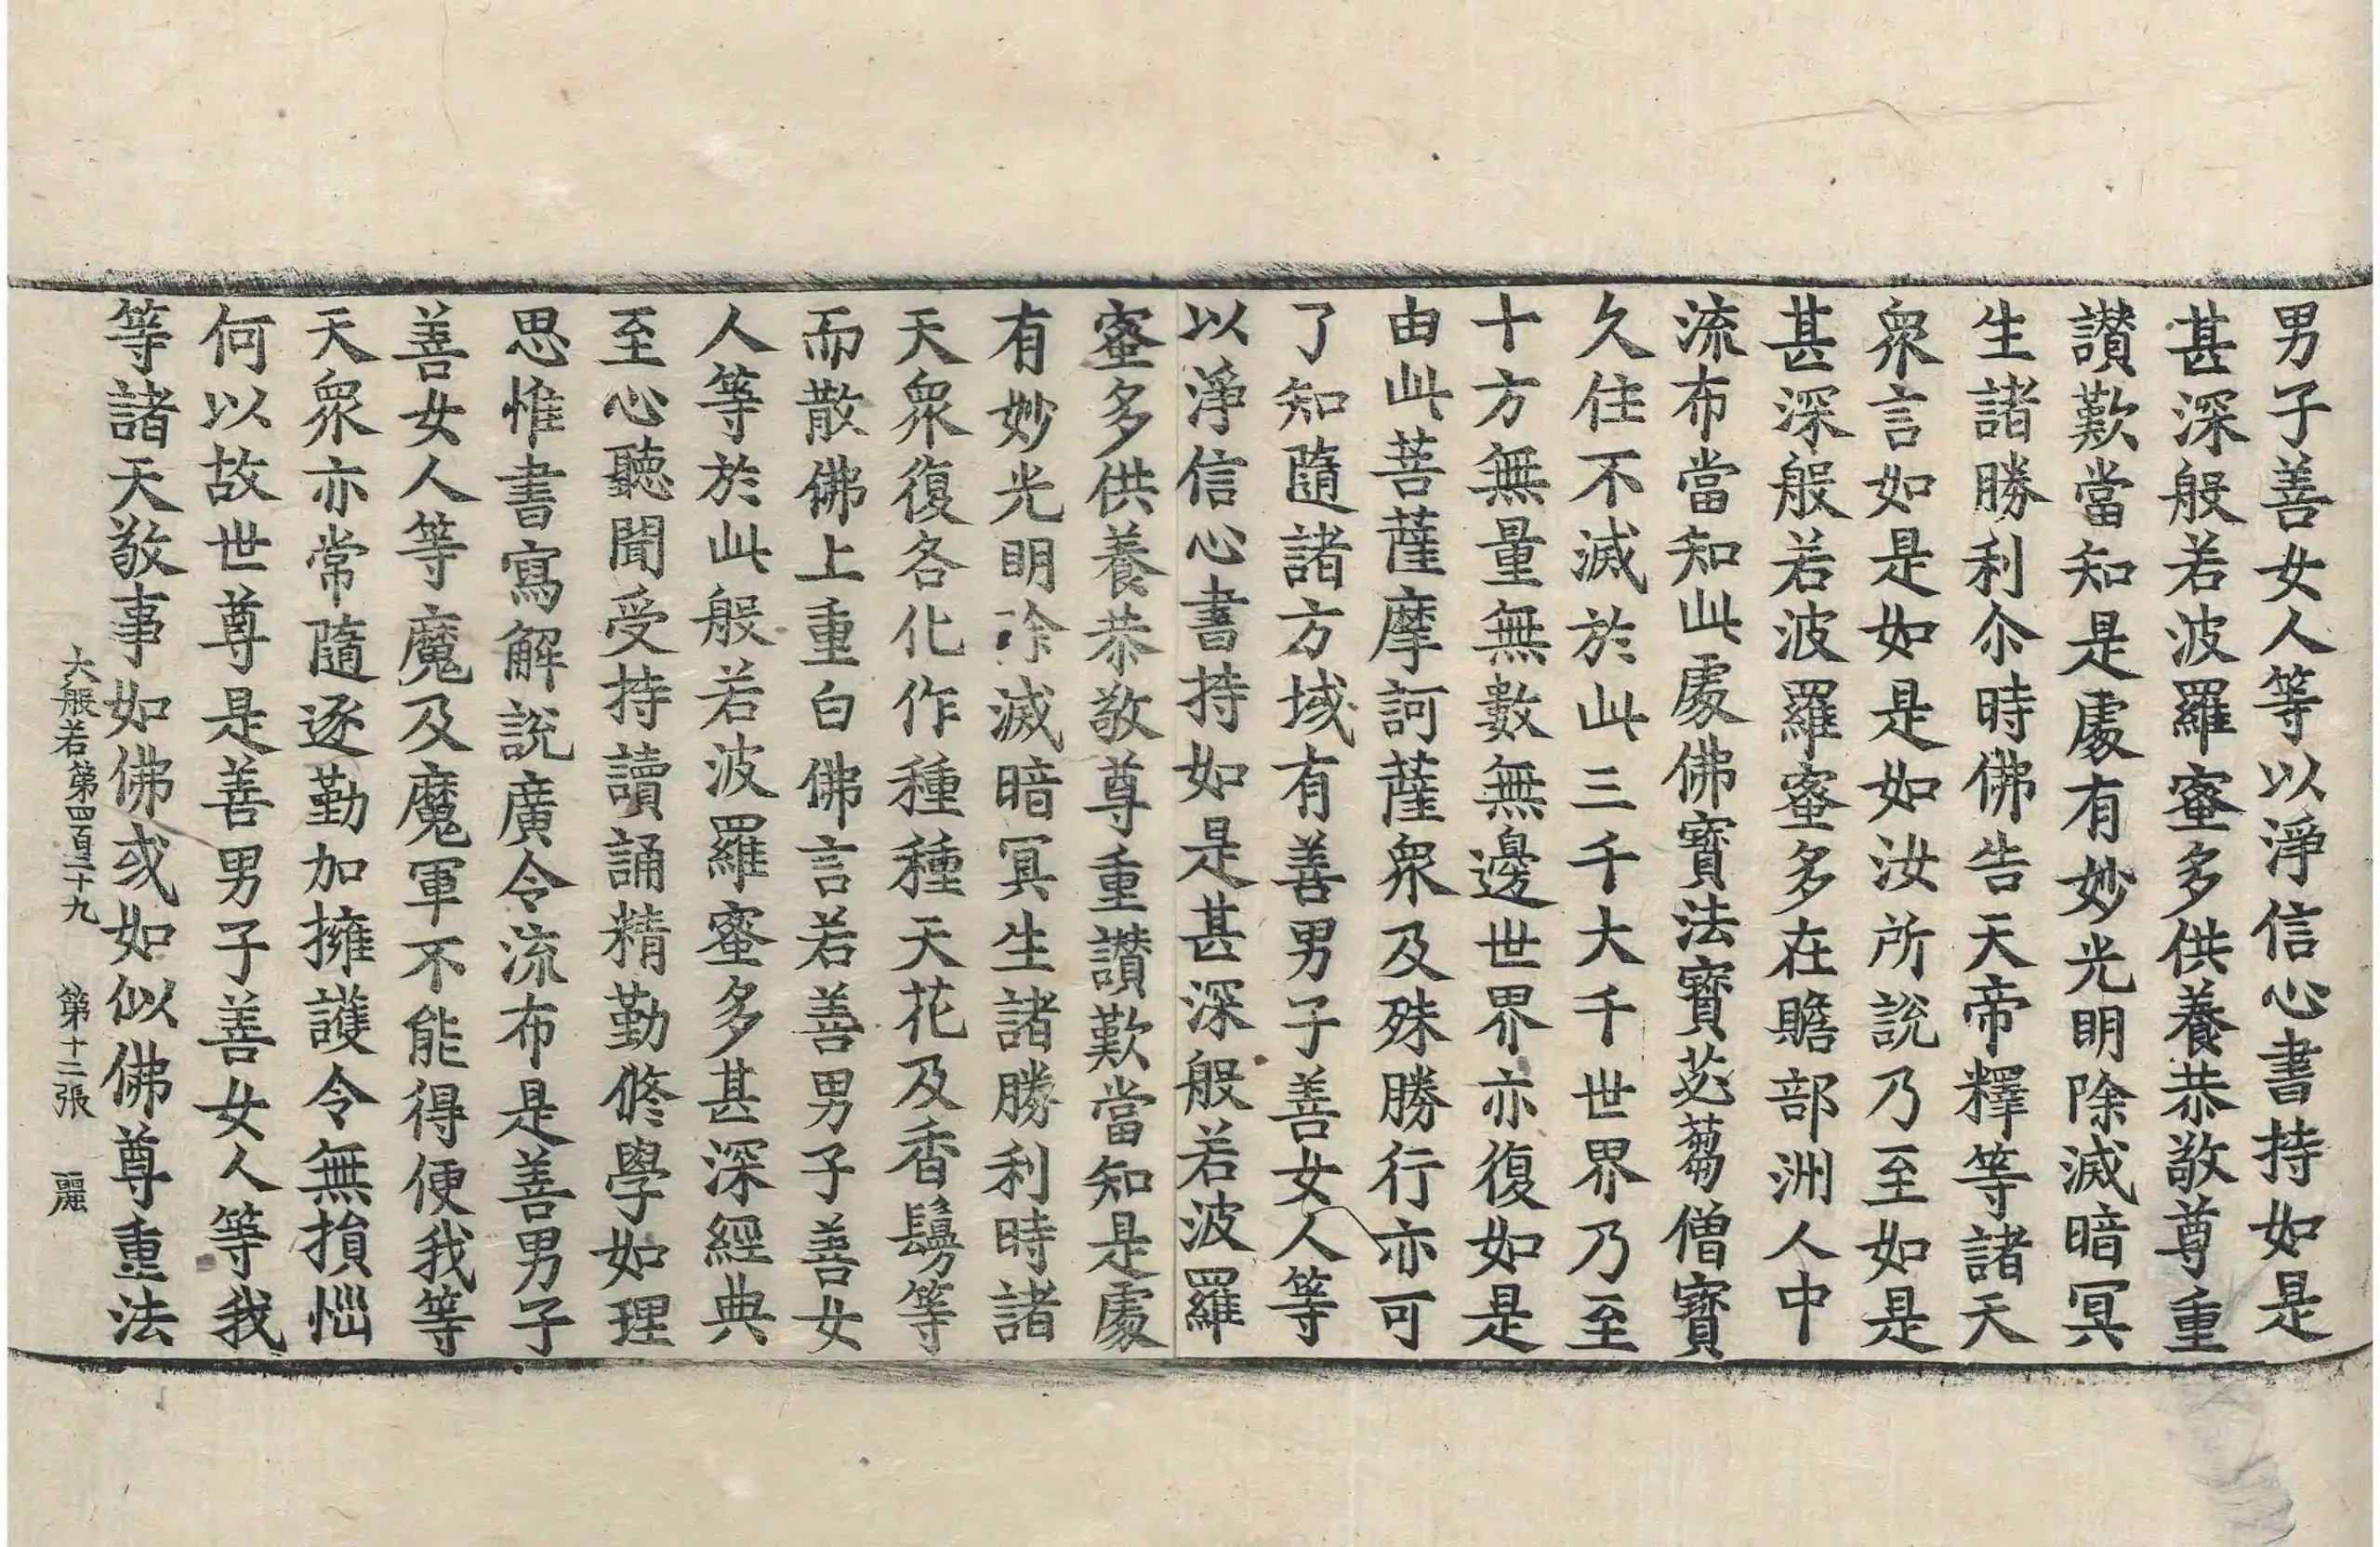 男子善女人等以淨信心書持如是
甚深般若波羅蜜多供養恭敬尊重
讃歎當知是處有妙光明除滅暗冥
生諸勝利尒時佛告天帝釋等諸天
衆言如是如是如汝所說乃至如是
甚深般若波羅蜜多在贍部洲人中
流布當知此處佛寶法寶苾芻僧寶
久住不滅於此三千大千世界乃至
十方無量無數無邊世界亦復如是
由此菩薩摩訶薩衆及殊勝行亦可
了知隨諸方域有善男子善女人等
以淨信心書持如是甚深般若波羅
蜜多供養恭敬尊重讃歎當知是處
有妙光明除滅暗冥生諸勝利時諸
天衆復各化作種種天花及香鬘等
而散佛上重白佛言若善男子善女
人等於此般若波羅蜜多甚深經典
至心聽聞受持讀誦精勤修學如理
思惟書寫解說廣令流布是善男子
善女人等魔及魔軍不能得便我等
天衆亦常隨逐勤加擁護令無損惱
何以故世尊是善男子善女人等我
等諸天敬事如佛或如似佛尊重法
大般若第四百二十九 第十二張 麗